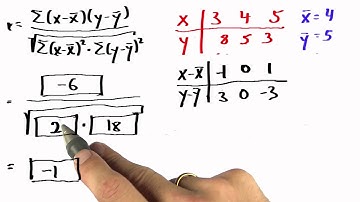 r = Σ(x-x̄)(y-ȳ)
√Σ(x-x̄)² · Σ(y-ȳ)²
= -6
√2 · 18
= -1
x | 3 4 5
y | 8 5 3
x̄ = 4
ȳ = 5
x-x̄ | -1 0 1
y-ȳ | 3 0 -3